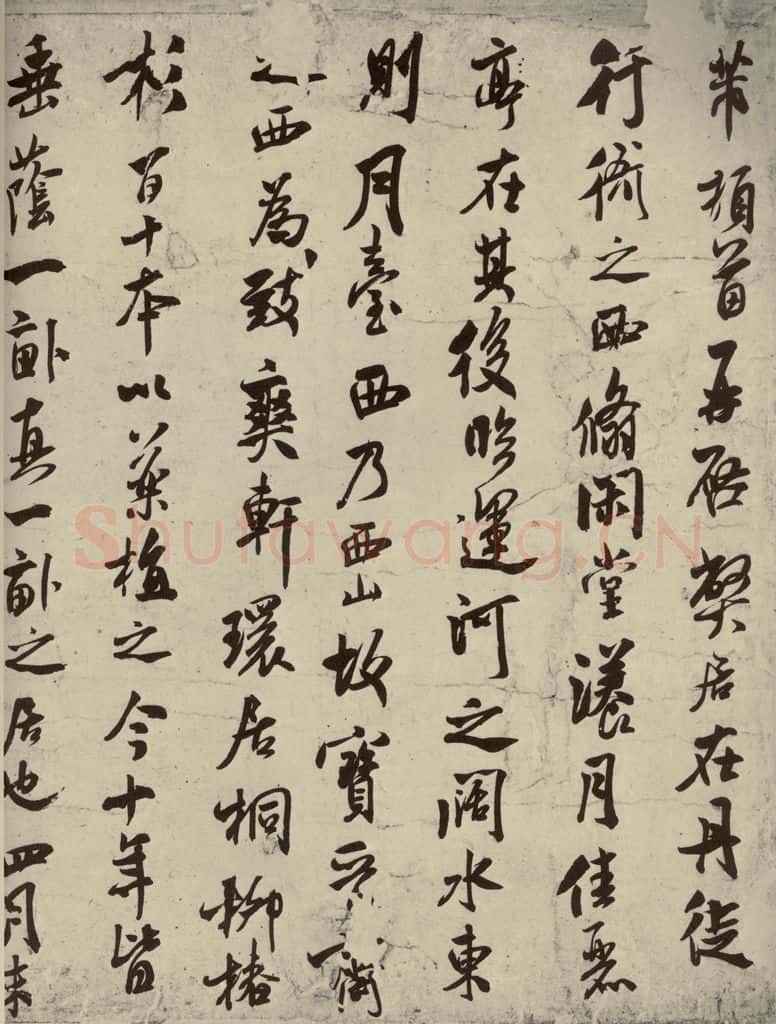 芾頓首再啓弊居在丹徒
行衙之西翛閑堂漾月佳麗
亭在其後臨運河之闊水東
則月臺西乃西山故寶晉齋
之西為致爽軒環居桐柳椿
杉百十本以藥植之今十年皆
垂蔭一畝真一畝之居也四月末
Shufawang.CN